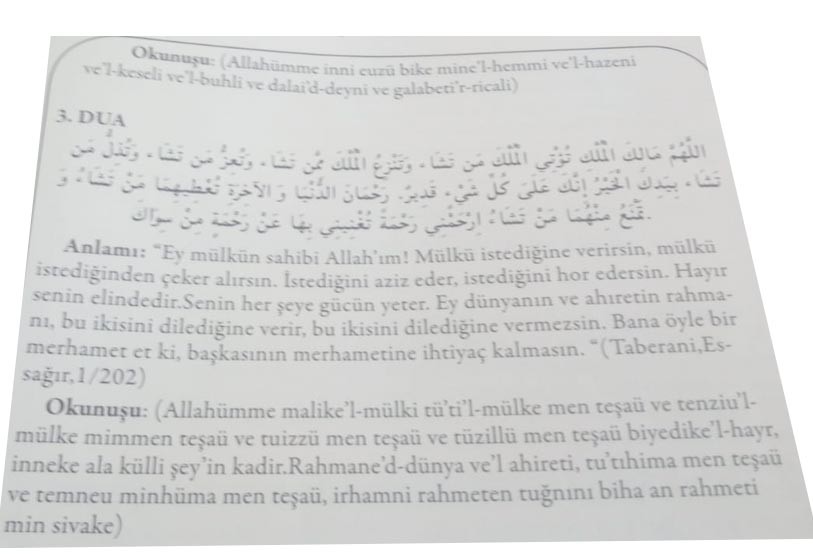 Okunuşu: (Allahümme inni euzü bike mine'l-hemmi ve'l-hazeni
ve'l-keseli ve'l-buhli ve dalai'd-deyni ve galabeti'r-ricali)
3. DUA
اللَّهُمَّ مَالِكَ الْمُلْكِ تُؤْتِي الْمُلْكَ مَن تَشَاء، وَتَنْزِعُ الْمُلْكَ مِمَّن تَشَاء، وَتُعِزُّ مَن تَشَاء، وَتُذِلُّ مَن
تَشَاء، بِيَدِكَ الْخَيْرُ إِنَّكَ عَلَى كُلِّ شَيْءٍ قَدِيرٌ. رَحْمَانَ الدُّنْيَا وَ الآخِرَةِ تُعْطِيهِمَا مَنْ تَشَاءُ وَ
تَمْنَعُ مِنْهُمَا مَنْ تَشَاءُ اِرْحَمْنِي رَحْمَةً تُغْنِينِي بِهَا عَنْ رَحْمَةِ مِنْ سِوَاكَ.
Anlamı: "Ey mülkün sahibi Allah'ım! Mülkü istediğine verirsin, mülkü
istediğinden çeker alırsın. İstediğini aziz eder, istediğini hor edersin. Hayır
senin elindedir.Senin her şeye gücün yeter. Ey dünyanın ve ahiretin rahma-
nı, bu ikisini dilediğine verir, bu ikisini dilediğine vermezsin. Bana öyle bir
merhamet et ki, başkasının merhametine ihtiyaç kalmasın. "(Taberani,Es-
sağır,1/202)
Okunuşu: (Allahümme malike'l-mülki tü'ti'l-mülke men teşaü ve tenziu'l-
mülke mimmen teşaü ve tuizzü men teşaü ve tüzillü men teşaü biyedike'l-hayr,
inneke ala külli şey'in kadir.Rahmane'd-dünya ve'l ahireti, tu'tıhima men teşaü
ve temneu minhüma men teşaü, irhamni rahmeten tuğnını biha an rahmeti
min sivake)